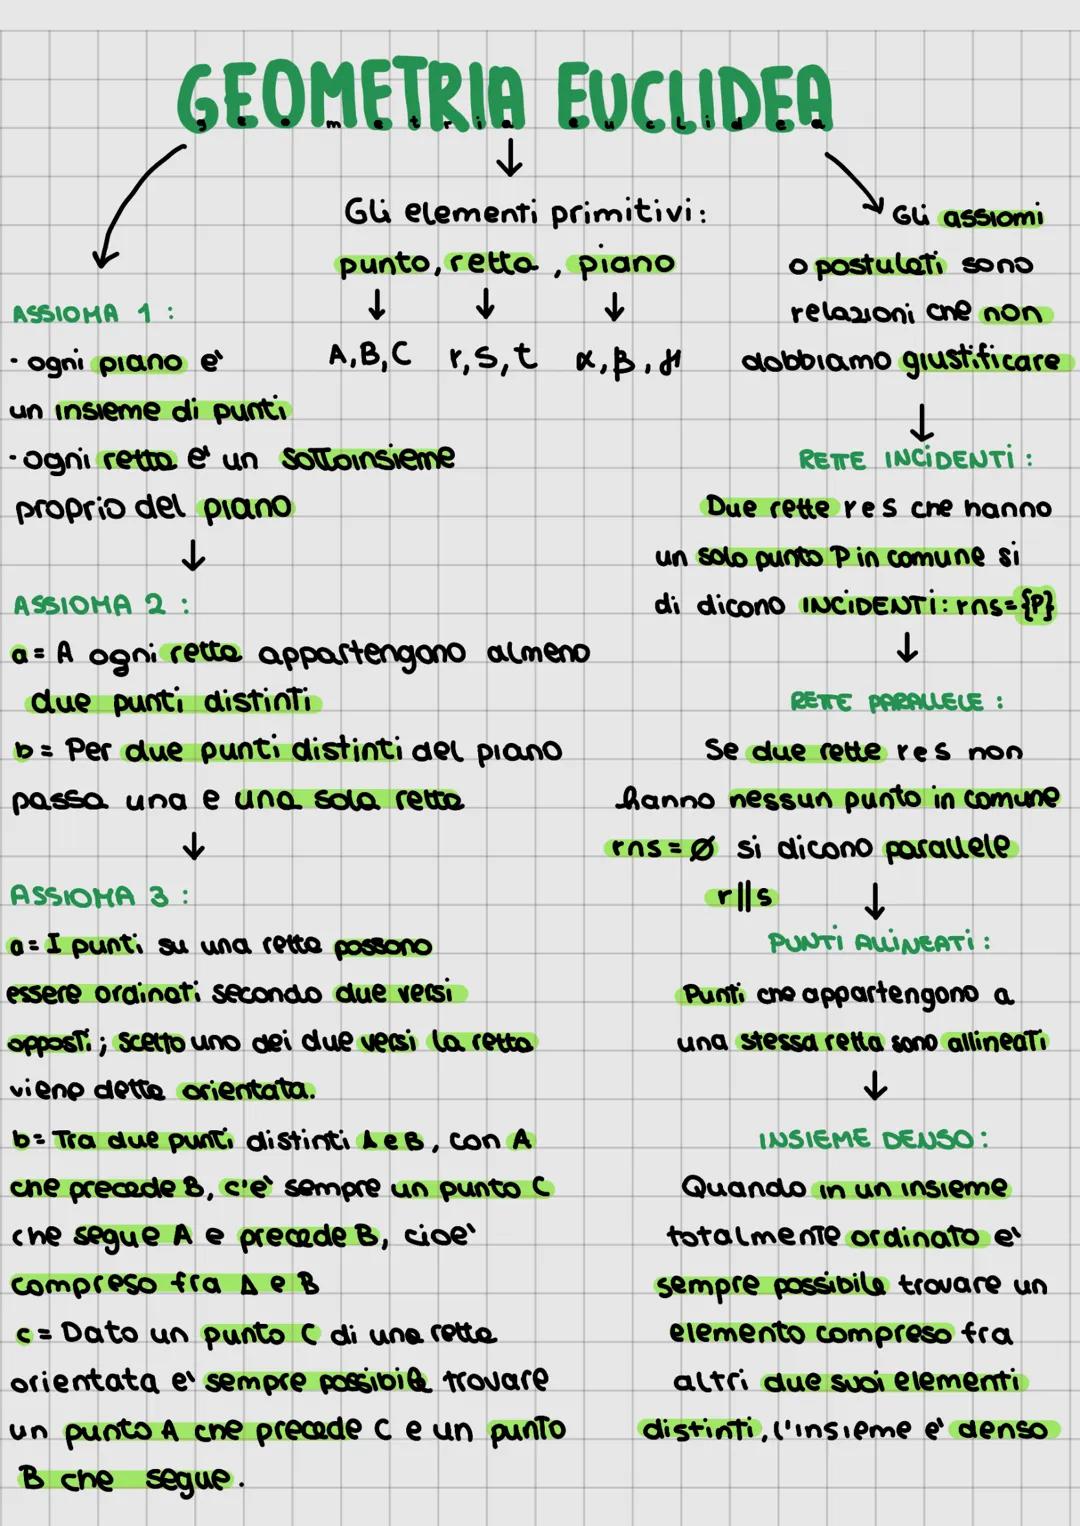 GEOMETRIA EUCLIDEA
geometria euclidea
Gli elementi primitivi:
punto, retta, piano
A,B,C r,s,t α,β,γ
ASSIOMA 1 :
· ogni piano e'
un insieme di punti
· ogni retta e' un sottoinsieme
proprio del piano
ASSIOMA 2 :
a = A ogni retta appartengono almeno
due punti distinti
b = Per due punti distinti del piano
passa una e una sola retta
ASSIOMA 3 :
a = I punti su una retta possono
essere ordinati secondo due versi
opposti ; scelto uno dei due versi la retta
viene detta orientata.
b = Tra due punti distinti A e B, con A
che precede B, c'e' sempre un punto C
che segue A e precede B, cioe'
compreso fra A e B
c = Dato un punto C di una retta
orientata e' sempre possibile trovare
un punto A che precede C e un punto
B che segue.
Gli assiomi
o postulati sono
relazioni che non
dobbiamo giustificare
RETTE INCIDENTI :
Due rette r e s che hanno
un solo punto P in comune si
di dicono INCIDENTI: r∩s={P}
RETTE PARALLELE :
Se due rette r e s non
hanno nessun punto in comune
r∩s = Ø si dicono parallele
r||s
PUNTI ALLINEATI :
Punti che appartengono a
una stessa retta sono allineati
INSIEME DENSO :
Quando in un insieme
totalmente ordinato e'
sempre possibile trovare un
elemento compreso fra
altri due suoi elementi
distinti, l'insieme e' denso